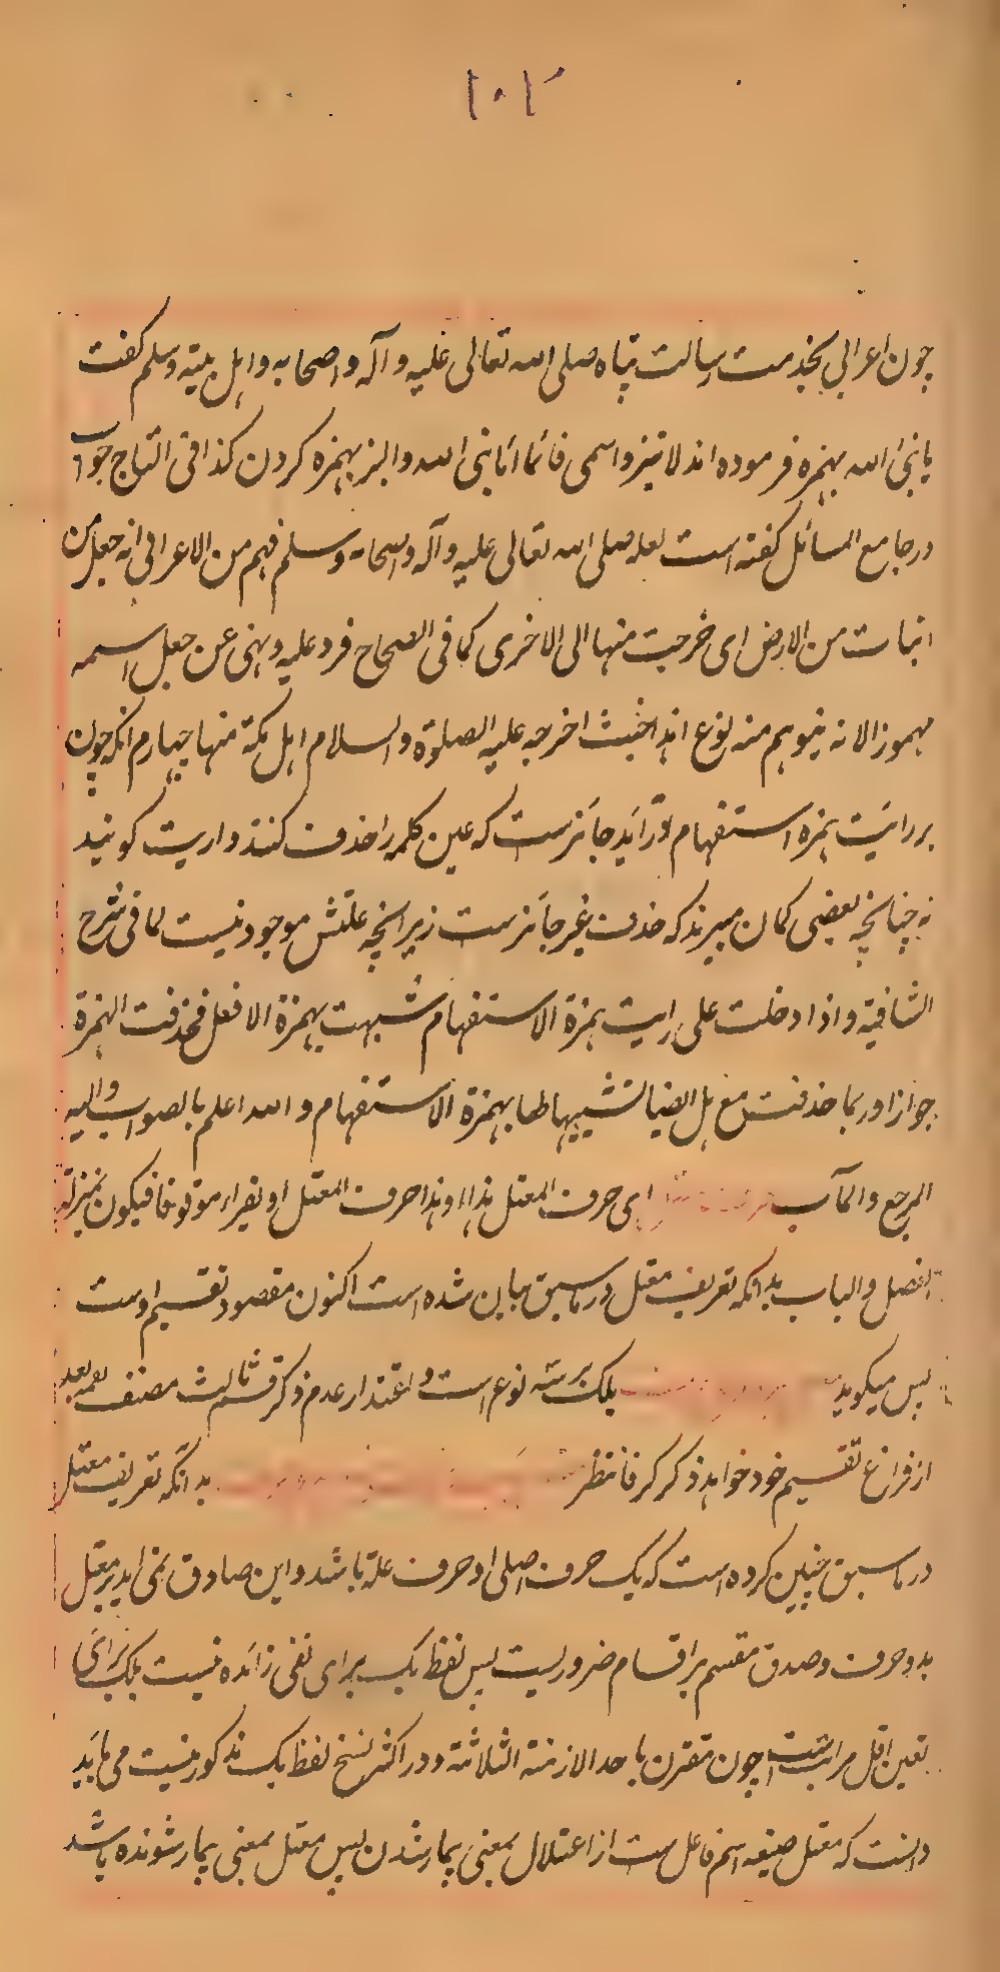 ۱۰۲
چون اعرابی بخدمت رسالت پناه صلی الله تعالی علیه و آله و اصحابه و اهل بیته وسلم گفت
یا نبئ الله بهمزه فرموده اند لا تنبز واسمی فانما انا نبی الله والنبز بهمزه کردن کذا فی التاج جواب
در جامع المسائل گفته است لعله صلی الله تعالی علیه و آله واصحابه وسلم فهم من الاعرابی انه جعل من
انبات من الارض ای خرجت منها الی الاخری کما فی الصحاح فرد علیه ونهی عن جعل اسمه
مهموزا لانه یتوهم منه نوع ایذا خبث اخرجه علیه الصلوة والسلام اهل مکة منها چهارم انکه چون
بر رایت همزه استفهام در آید جائزست که عین کلمه را حذف کنند و اریت گویند
نه چنانچه بعضی کمان میبرند که حذف غیر جائزست زیرانچه علتش موجود نیست لما فی شرح
الشافیة و اذا دخلت علی رایت همزة الاستفهام شبهت بهمزة الافعل فحذفت الهمزة
جوازا وربما حذفت مع هل ایضا لتشبیهها لها بهمزة الاستفهام و الله اعلم بالصواب والیه
المرجع والمآب ای حرف المعتل هذا اوهذا حرف المعتل او یقرا موقوفا فیکون بمنزلة
الفصل والباب بدانکه تعریف معتل در ماسبق بیان شده است اکنون مقصود تقسیم اوست
پس میگوید بلک بر سه نوع است و اعتذار عدم ذکر قسم ثالث مصنف بعد
از فراغ تقسیم خود خواهد ذکر کرد فانتظر بدانکه تعریف معتل
در ماسبق چنین کرده است که یک حرف اصلی او حرف علة باشد و این صادق نمی اید بر معتل
بدو حرف و صدق مقسم بر اقسام ضروریست پس لفظ یک برای نفی زائده نیست بلک برای
تعین اقل مراتبست چون مقترن باحد الازمنة الثلاثة و در اکثر نسخ لفظ یک مذکور نیست می باید
دانست که معتل صیغه اسم فاعل ست از اعتلال بمعنی بیمار شدن پس معتل بمعنی بیمار شونده باشد